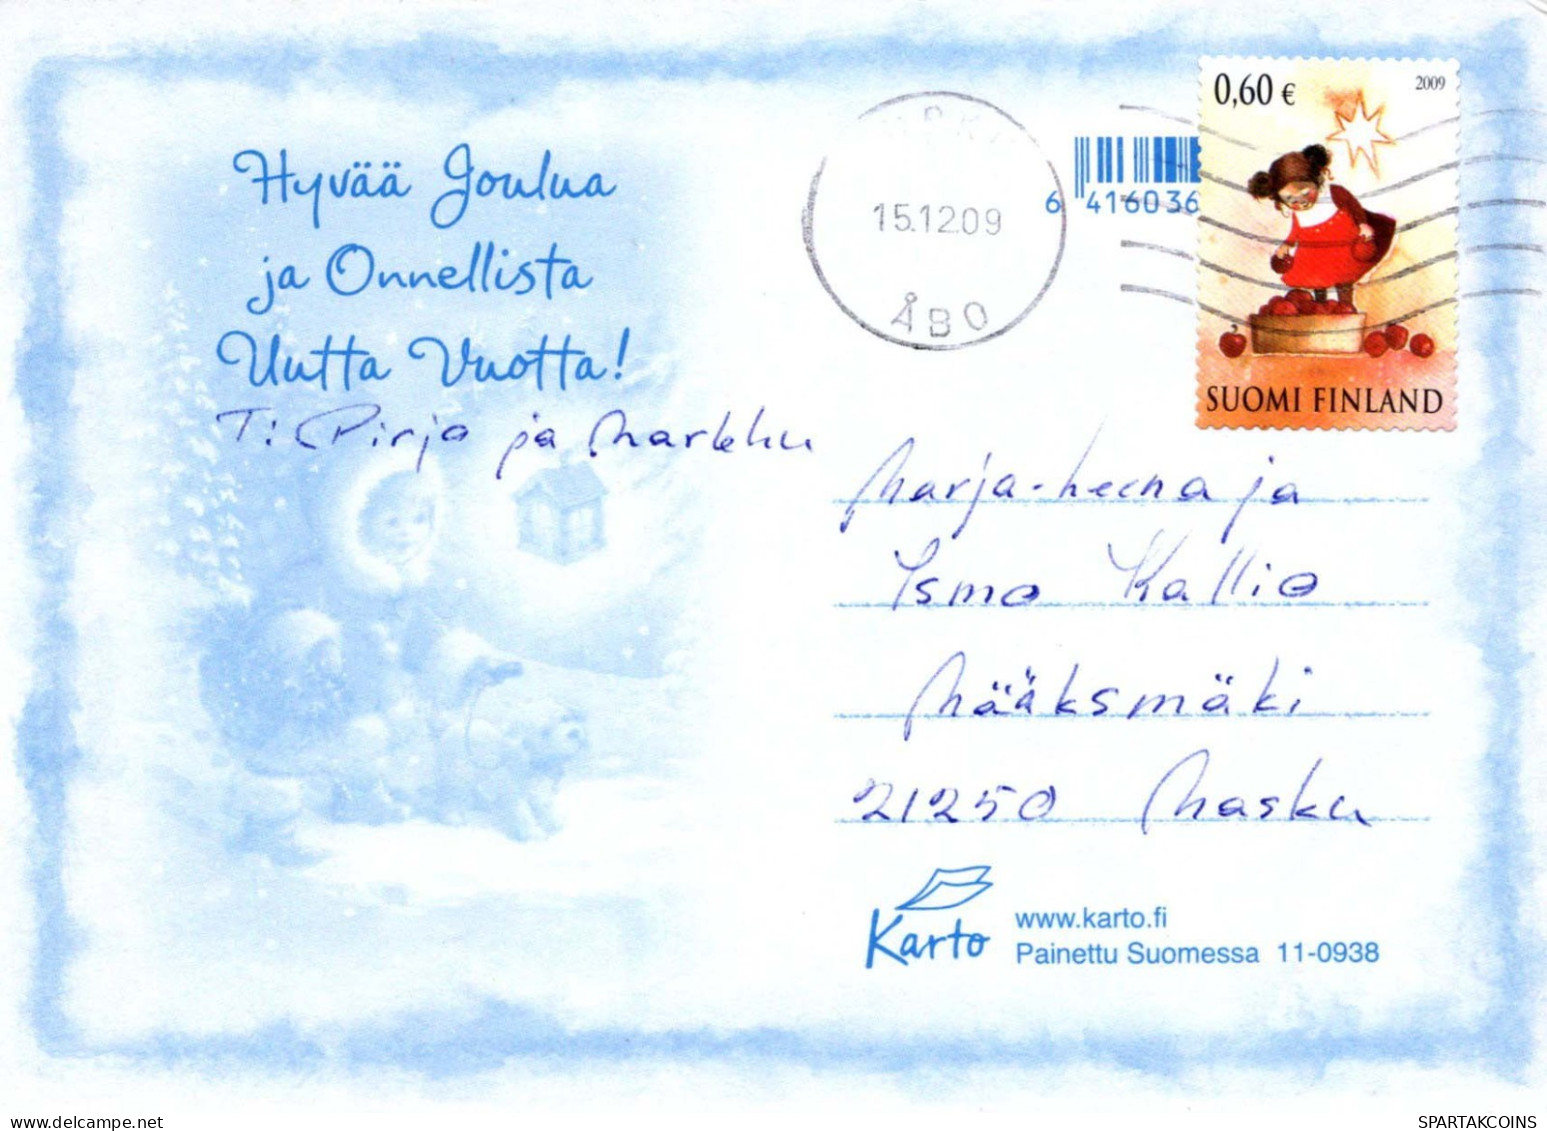 Hyvää Joulua
ja Onnellista
Uutta Vuotta!
T: Pirjo ja Markku
15.12.09
ÅBO
6 416036
0,60 €
2009
SUOMI FINLAND
Marja-Leena ja
Ismo Kallio
Määksmäki
21250 Masku
Karto
www.karto.fi
Painettu Suomessa 11-0938
delcampe.net
SPARTAKCOINS